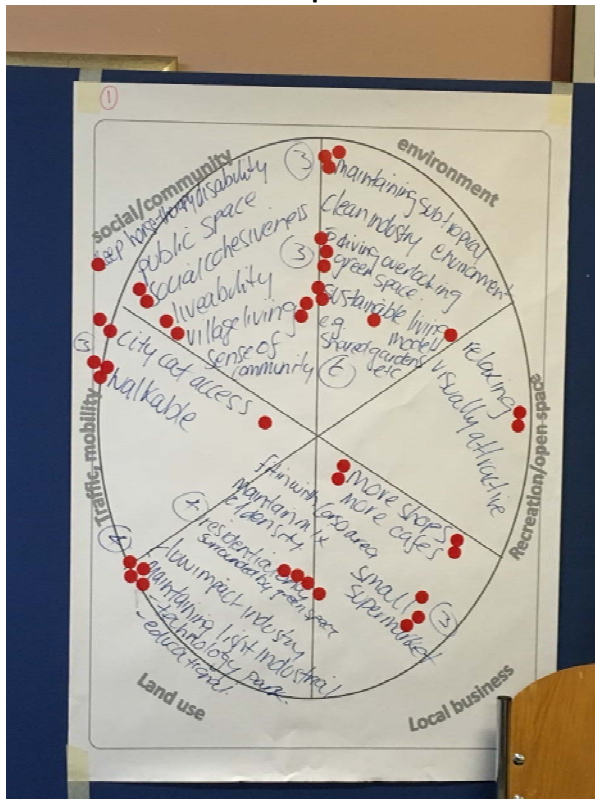 1
social/community
keep horse therapy disability
public space
social cohesiveness
liveability
village living
sense of
community
environment
3
maintaining subtropical
clean industry environment
3
overlooking
green space
sustainable living
e.g. model
shared gardens
etc
6
Recreation/open space
relaxing
visually attractive
Local business
more shops
more cafes
small
supermarket
3
Land use
4
maintain mix
of density
residential only
surrounded by green space
low impact industry
maintaining light industrial
- technology park
- educational
Traffic, mobility
3
city cat access
walkable